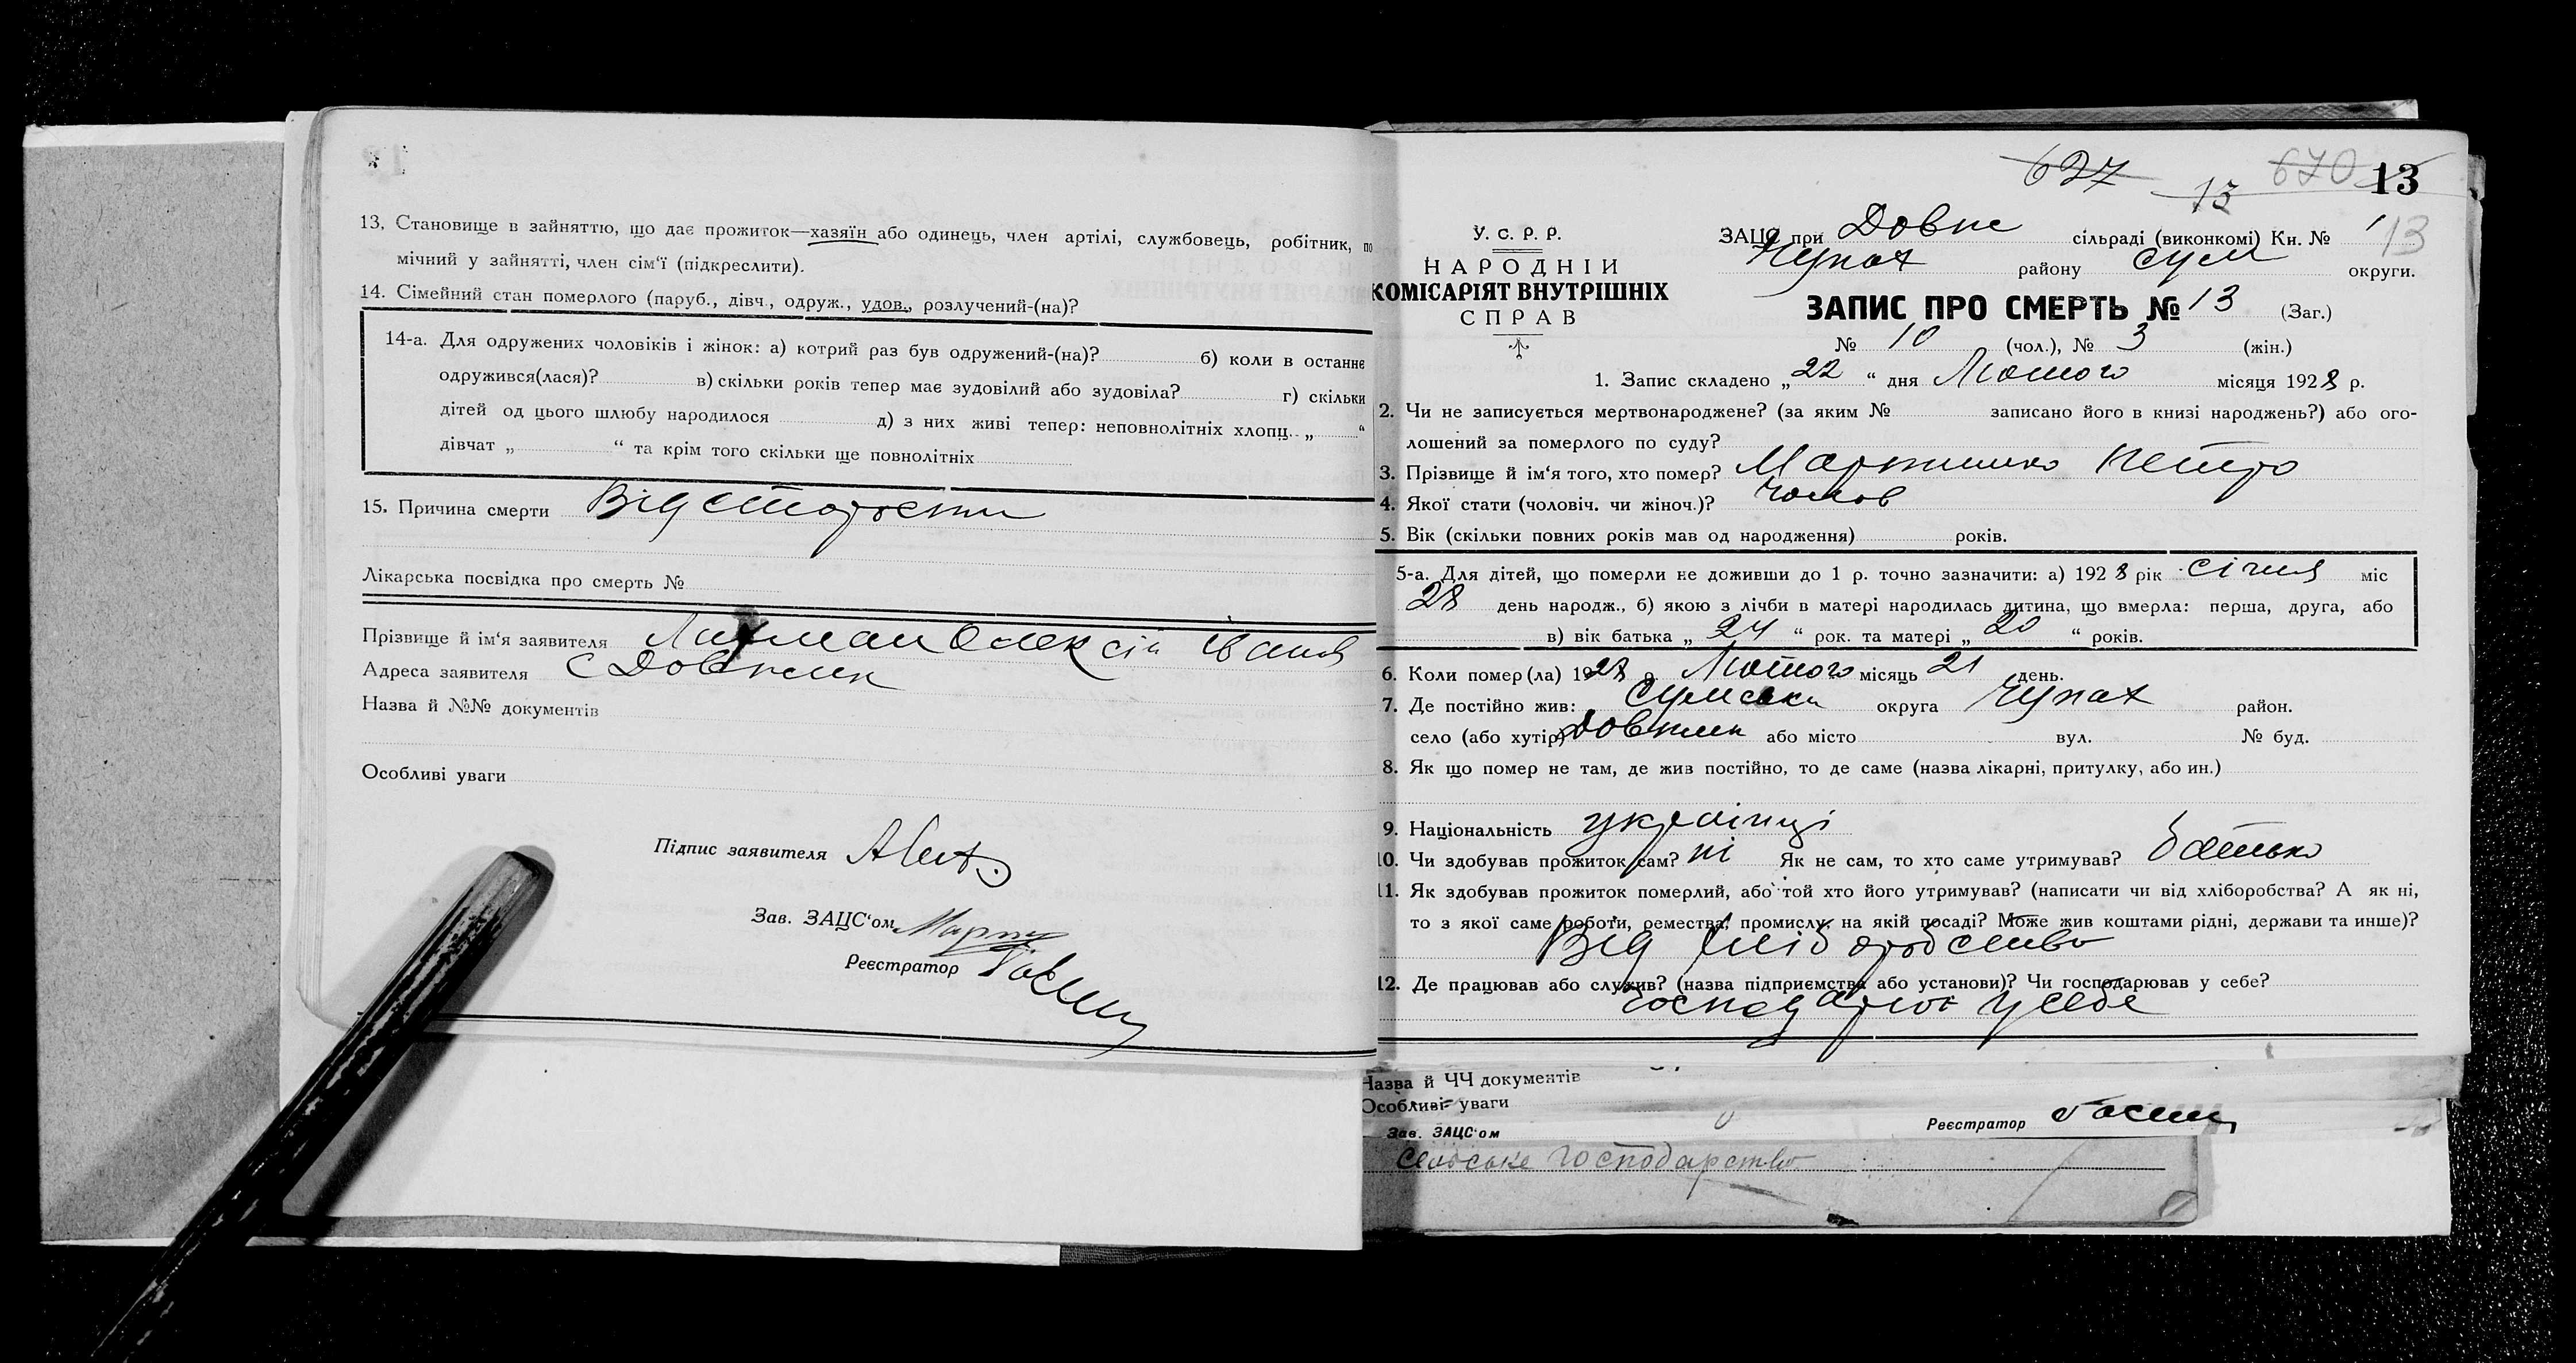 13. Становище в зайняттю, що дає прожиток—хазяїн або одинець, член артілі, службовець, робітник, по
мічний у зайнятті, член сім'ї (підкреслити).
14. Сімейний стан померлого (паруб., дівч., одруж., удов., розлучений-(на)?
14-а. Для одружених чоловіків і жінок: а) котрий раз був одружений-(на)? б) коли в останнє
одружився(лася)? в) скільки років тепер має зудовілий або зудовіла? г) скільки
дітей од цього шлюбу народилося д) з них живі тепер: неповнолітніх хлопц. „ “
дівчат „ “ та крім того скільки ще повнолітніх
15. Причина смерти Від старости
Лікарська посвідка про смерть №
Прізвище й ім'я заявителя Олексій Іванов
Адреса заявителя с Довжик
Назва й №№ документів
Особливі уваги
Підпис заявителя
Зав. ЗАЦС'ом
Реєстратор
627 13 670 13
У. С. Р. Р.
НАРОДНІЙ
КОМІСАРІЯТ ВНУТРІШНІХ
СПРАВ
ЗАЦС при Довж сільраді (виконкомі) Кн. № 1 13
Чупах району Сум округи.
ЗАПИС ПРО СМЕРТЬ № 13 (Заг.)
№ 10 (чол.), № 3 (жін.)
1. Запис складено „22“ дня Лютого місяця 1928 р.
2. Чи не записується мертвонароджене? (за яким № записано його в книзі народжень?) або ого-
лошений за померлого по суду?
3. Прізвище й ім'я того, хто помер? Петро
4. Якої стати (чоловіч. чи жіноч.)? Чолов
5. Вік (скільки повних років мав од народження) років.
5-а. Для дітей, що померли не доживши до 1 р. точно зазначити: а) 1928 рік січня міс
28 день народж., б) якою з лічби в матері народилась дитина, що вмерла: перша, друга, або
в) вік батька „24“ рок. та матері „20“ років.
6. Коли помер(ла) 1928 р. Лютого місяць 21 день.
7. Де постійно жив: Сумська округа Чупах район.
село (або хутір) Довжик або місто вул. № буд.
8. Як що помер не там, де жив постійно, то де саме (назва лікарні, притулку, або ин.)
9. Національність українці
10. Чи здобував прожиток сам? ні Як не сам, то хто саме утримував? батько
11. Як здобував прожиток померлий, або той хто його утримував? (написати чи від хліборобства? А як ні,
то з якої саме роботи, ремества, промислу, на якій посаді? Може жив коштами рідні, держави та инше)?
Від хліборобство
12. Де працював або служив? (назва підприємства або установи)? Чи господарював у себе?
господарює у себе
Назва й ЧЧ документів
Особливі уваги
Зав. ЗАЦС'ом Реєстратор
Сельське господарство